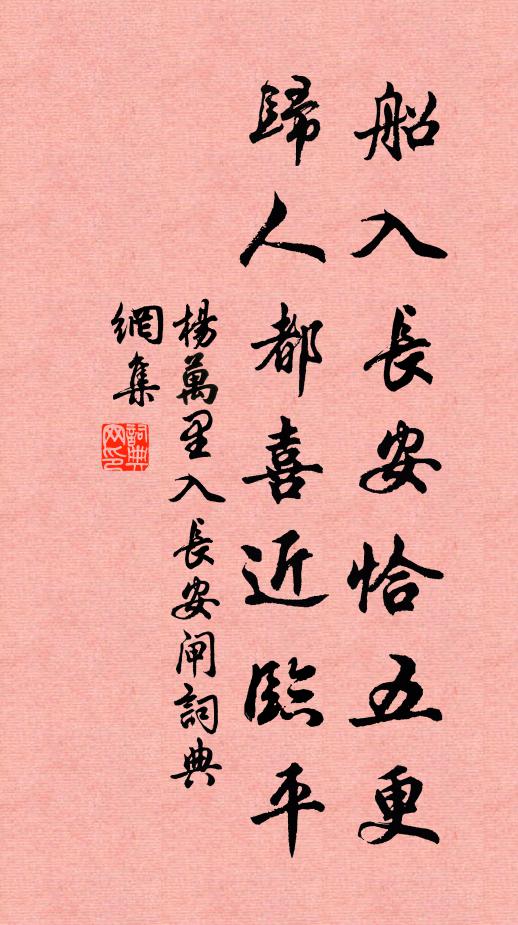 船入長安恰五更
歸人都喜近臨平
楊萬里入長安閘詞典
網集
詞典
网印